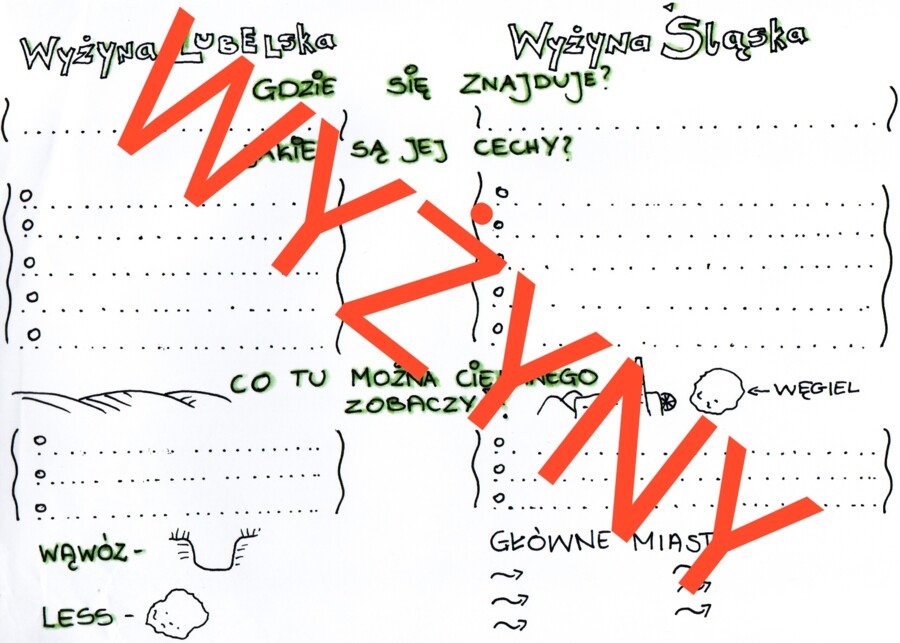 Wyżyna Lubelska
Wyżyna Śląska
GDZIE SIĘ ZNAJDUJE?
JAKIE SĄ JEJ CECHY?
WYŻYNY
CO TU MOŻNA CIEKAWEGO
ZOBACZYĆ?
← WĘGIEL
WĄWÓZ -
LESS -
GŁÓWNE MIASTA